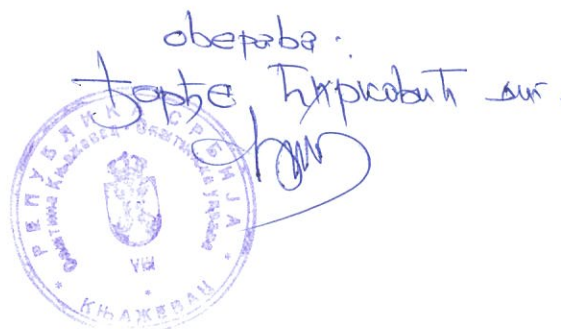 оверава:
Ђорђе Ћирковић
РЕПУБЛИКА СРБИЈА
Општина Књажевац Општинска управа
VIII
КЊАЖЕВАЦ